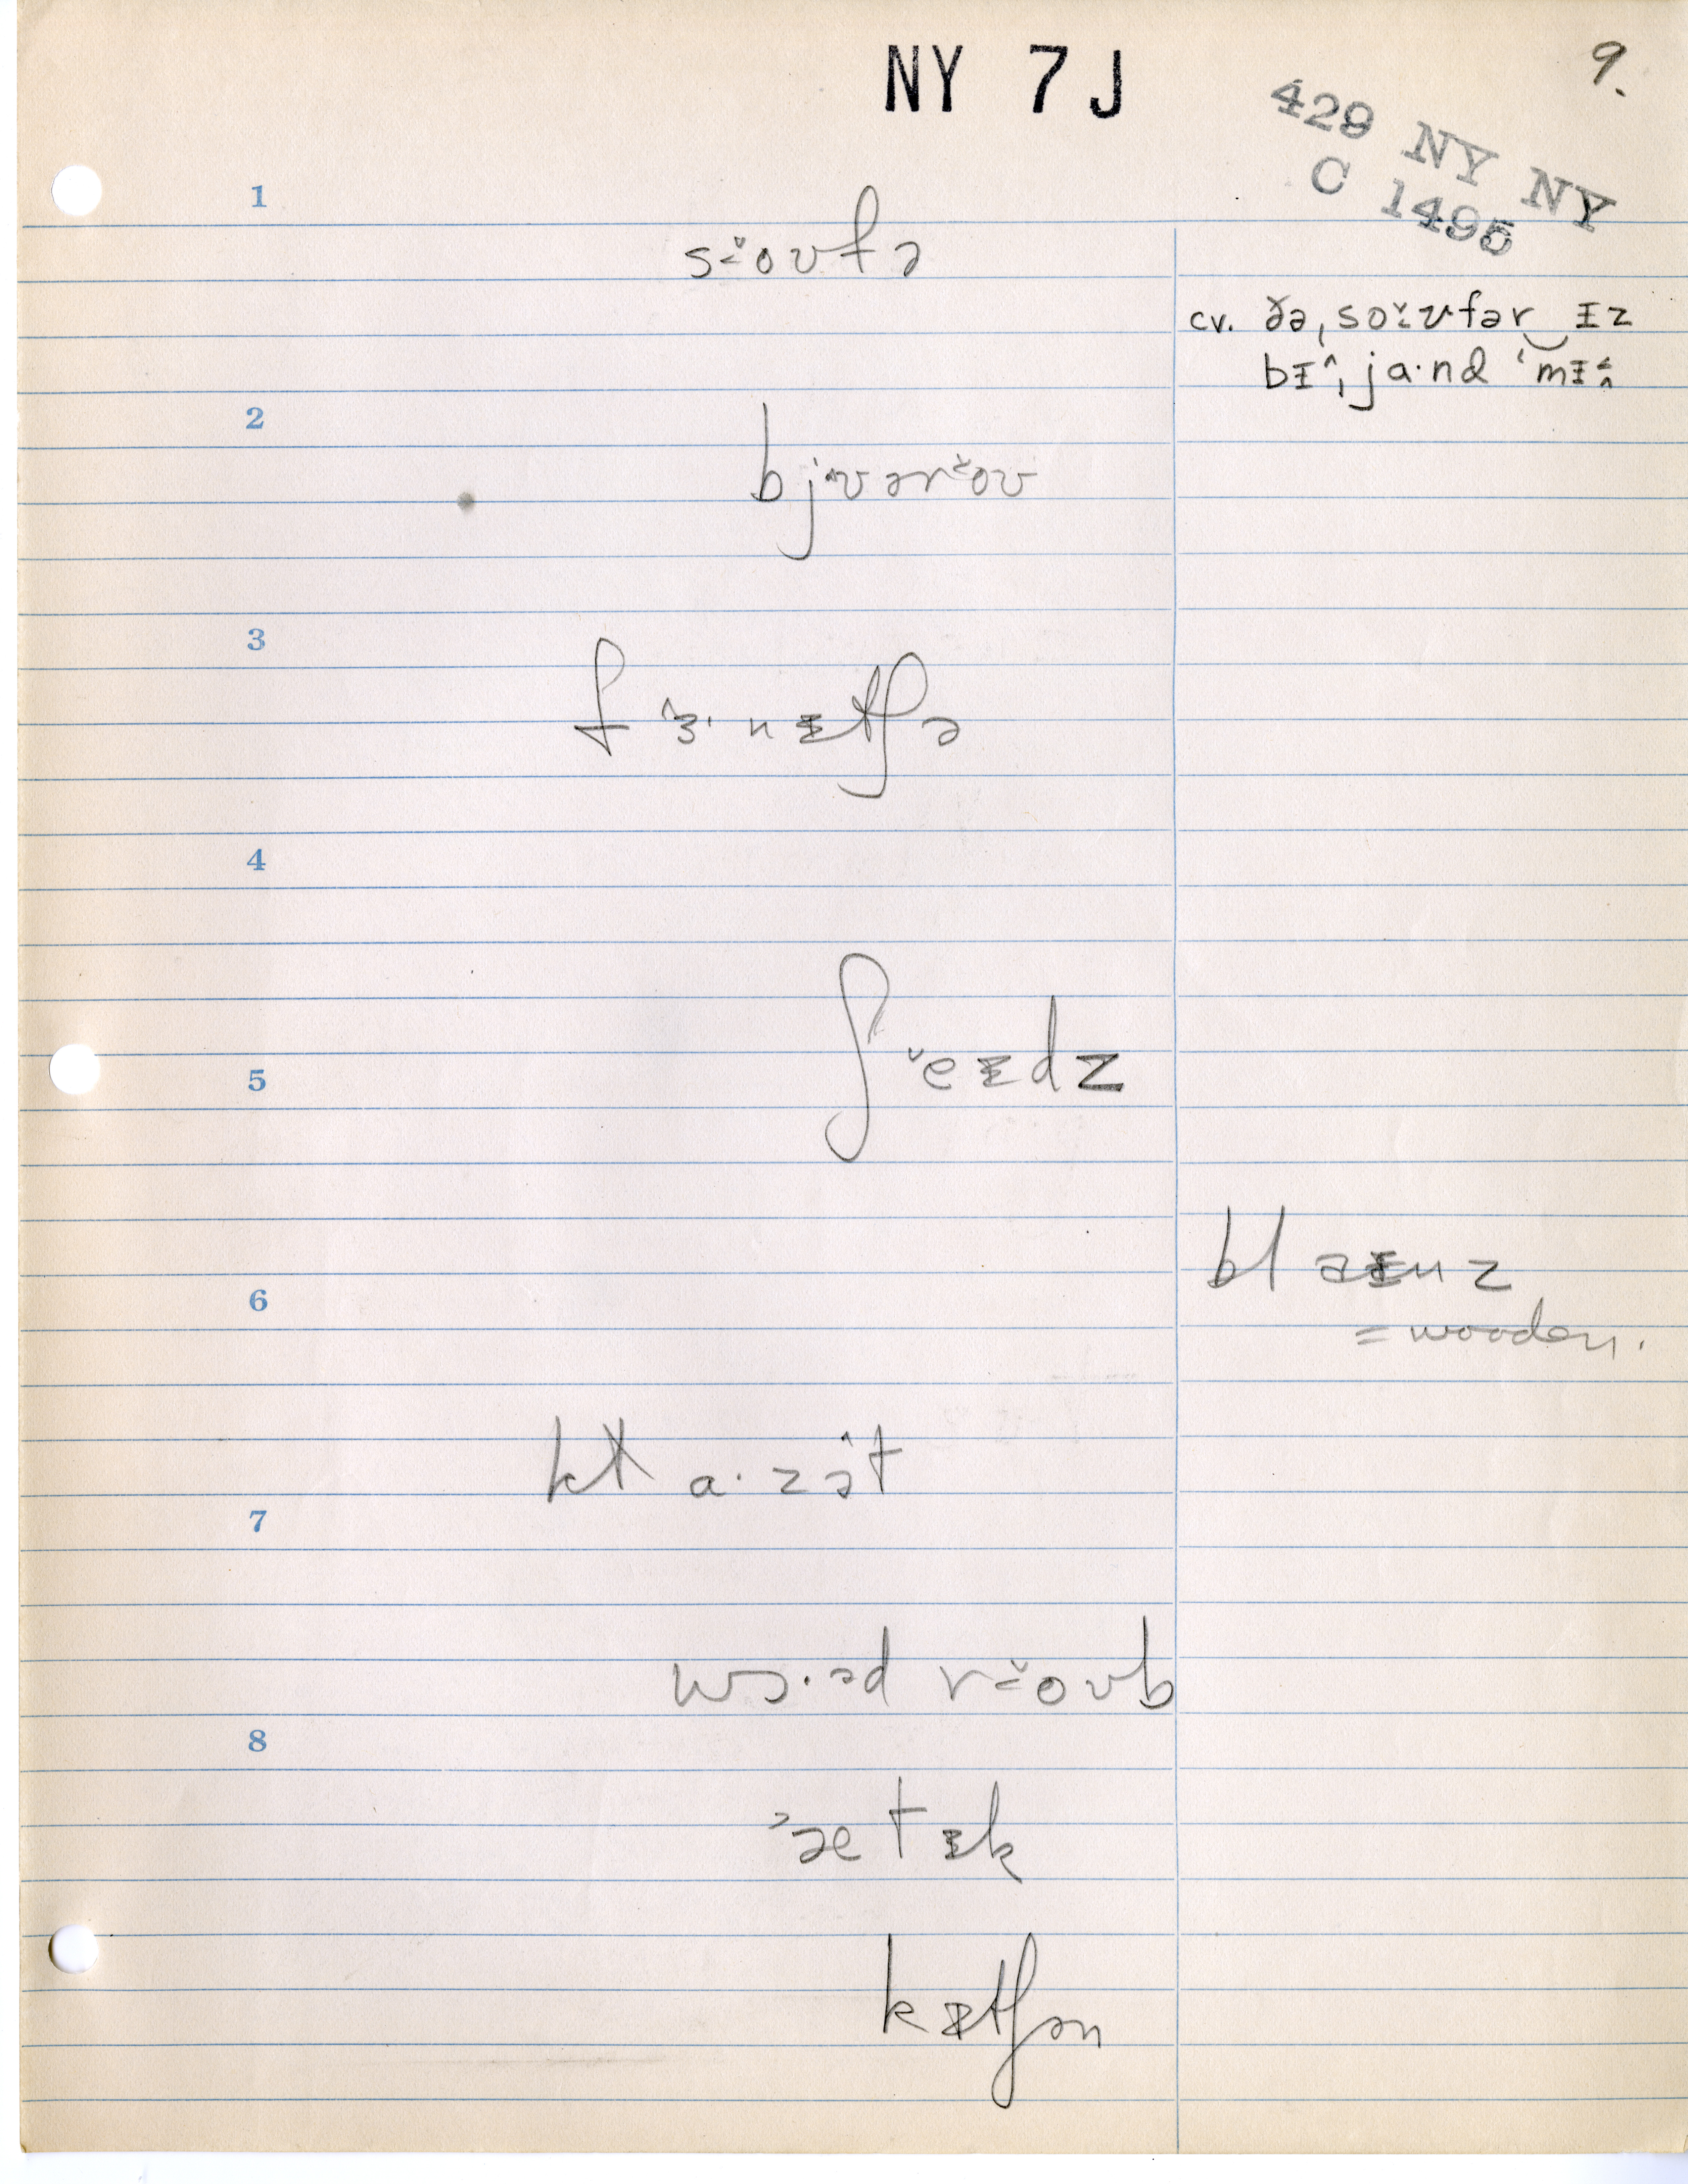 NY 7 J
9.
429 NY NY
C 1495
1
s˔̌oʊfə
cv. ðə ˌso˔̌ʊfər‿ɪz
bɪ^ˌja·nd ˈmɪ^
2
bj^ʊər˔̌oʊ
3
f^ɜ·nɪtʃə
4
ʃˇeɪdz
5
blaɪnz
= wooden.
6
kɫa·zə^t
7
wɔ·əd r˔̌oʊb
8
˃ætɪk
kɪtʃən